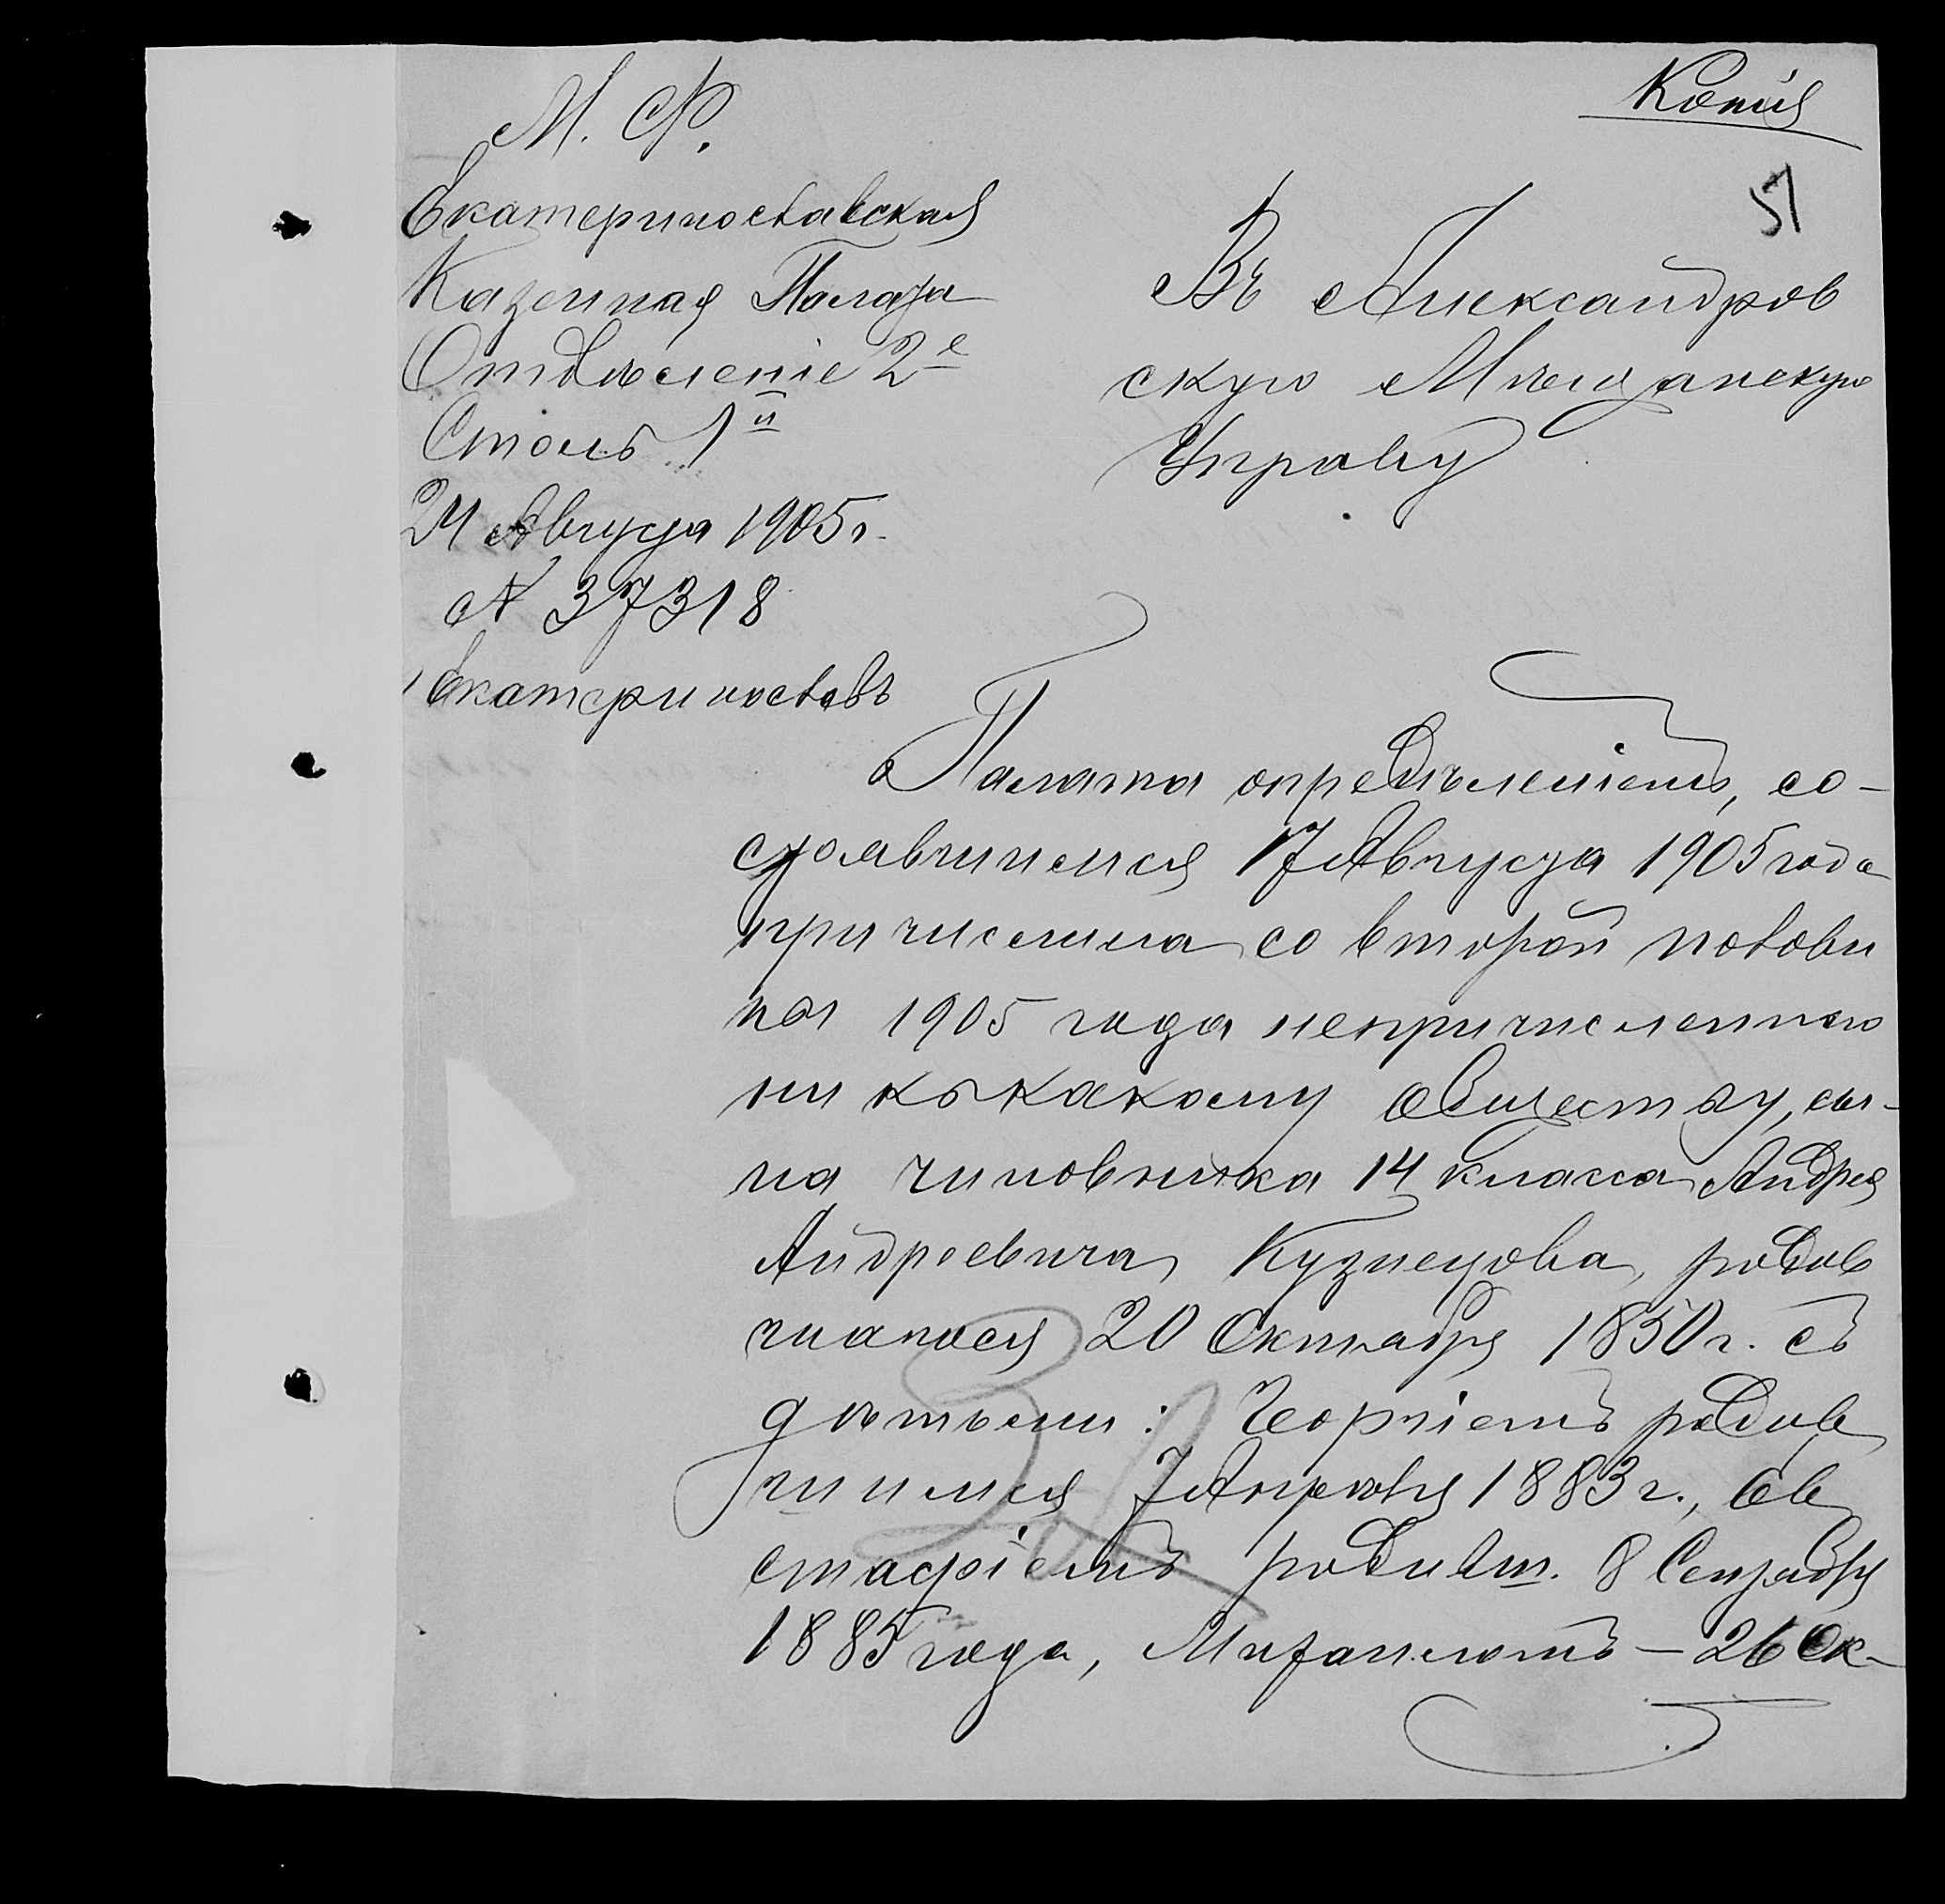 Копія
51
М. Ф.
Екатеринославская
Казенная Палата
Отдѣленіе 2е
Столъ 1й
24 Августа 1905 г.
№ 37318
Екатеринославъ
Въ Александров
скую Мѣщанскую
Управу
Палата опредѣленіемъ, со-
стоявшимся 17 Августа 1905 года
причислила со второй полови
ны 1905 года непричисленнаго
ни къ какому обществу, сы-
на чиновника 14 класса Андрея
Андреевича Кузнецова, родив
шагося 20 Октября 1850 г. съ
дѣтьми: Георгіемъ родив
шимся 7 Апрѣля 1883 г., Ев
стафіемъ родивш. 8 Сентября
1885 года, Михаиломъ – 26 Ок-